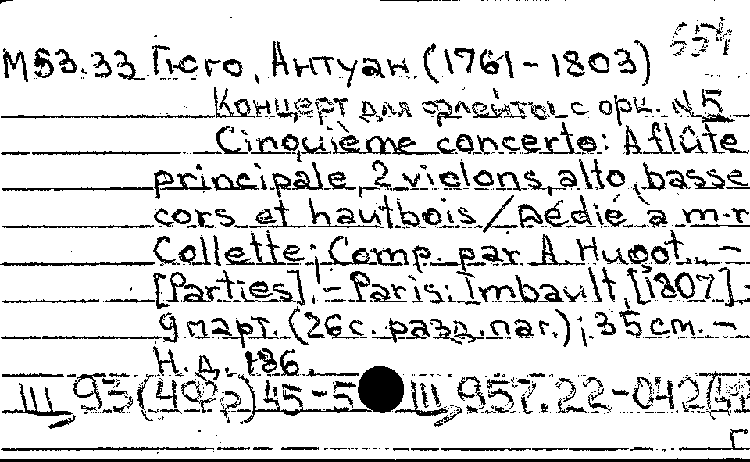 654
М53.33 Гюго, Антуан (1761-1803)
Концерт для флейты с орк. N5
Cinquième concerto: A flûte
principale, 2 violons, alto, basse
cors et hautbois / Dédié à m-r
Collette; Comp. par A. Hugot. -
[Parties]. - Paris: Imbault, [1807]. -
9 парт. (26 с. разд. паг.); 35 cm. -
Н. д. 186.
III 93(4Фр)45-5 III 957.22-042(4
Г